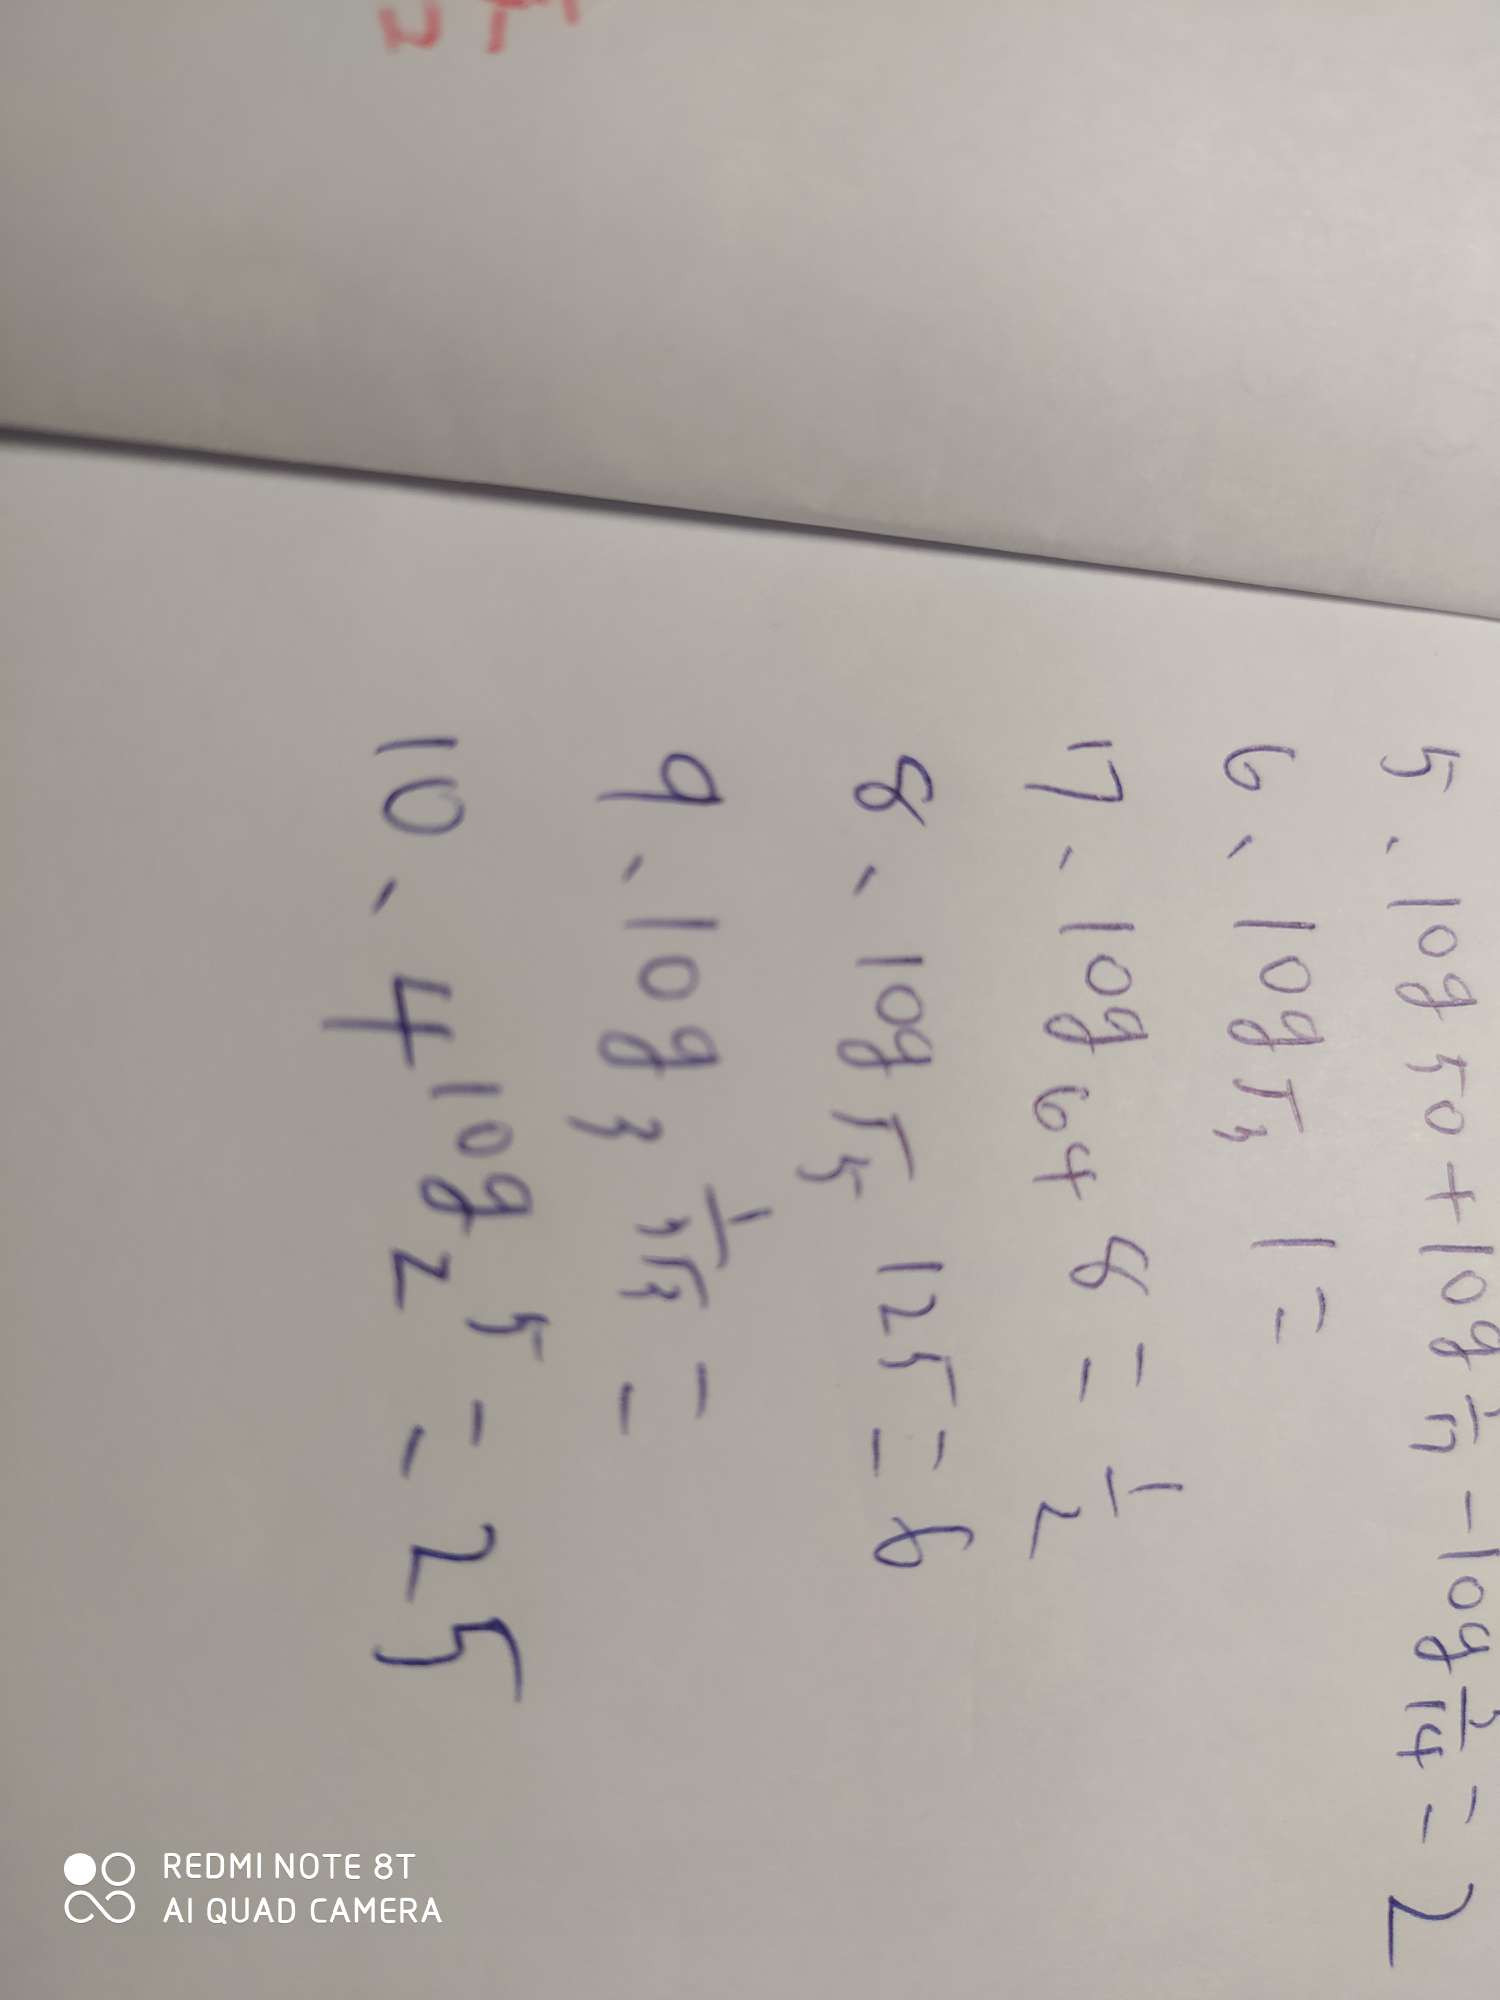 5. log 50 + log 3/7 - log 3/14 = 2
6. log √3 1 =
17. log 64 8 = 1/2
8. log √5 125 = 6
9. log 3 1/3√3 =
10. 4 log 2 5 = 25
REDMI NOTE 8T
AI QUAD CAMERA